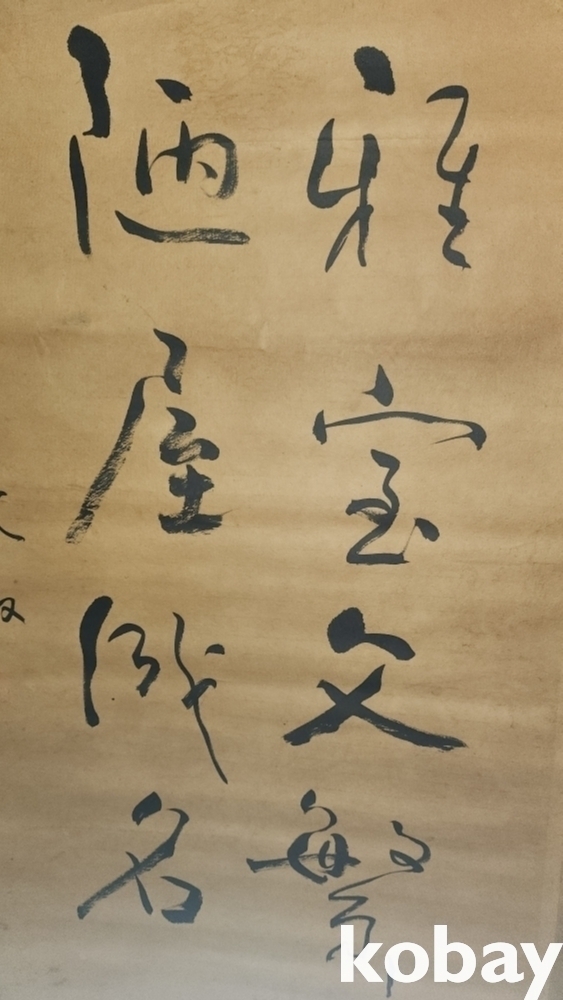 雅室文繁
陋屋成名
kobay